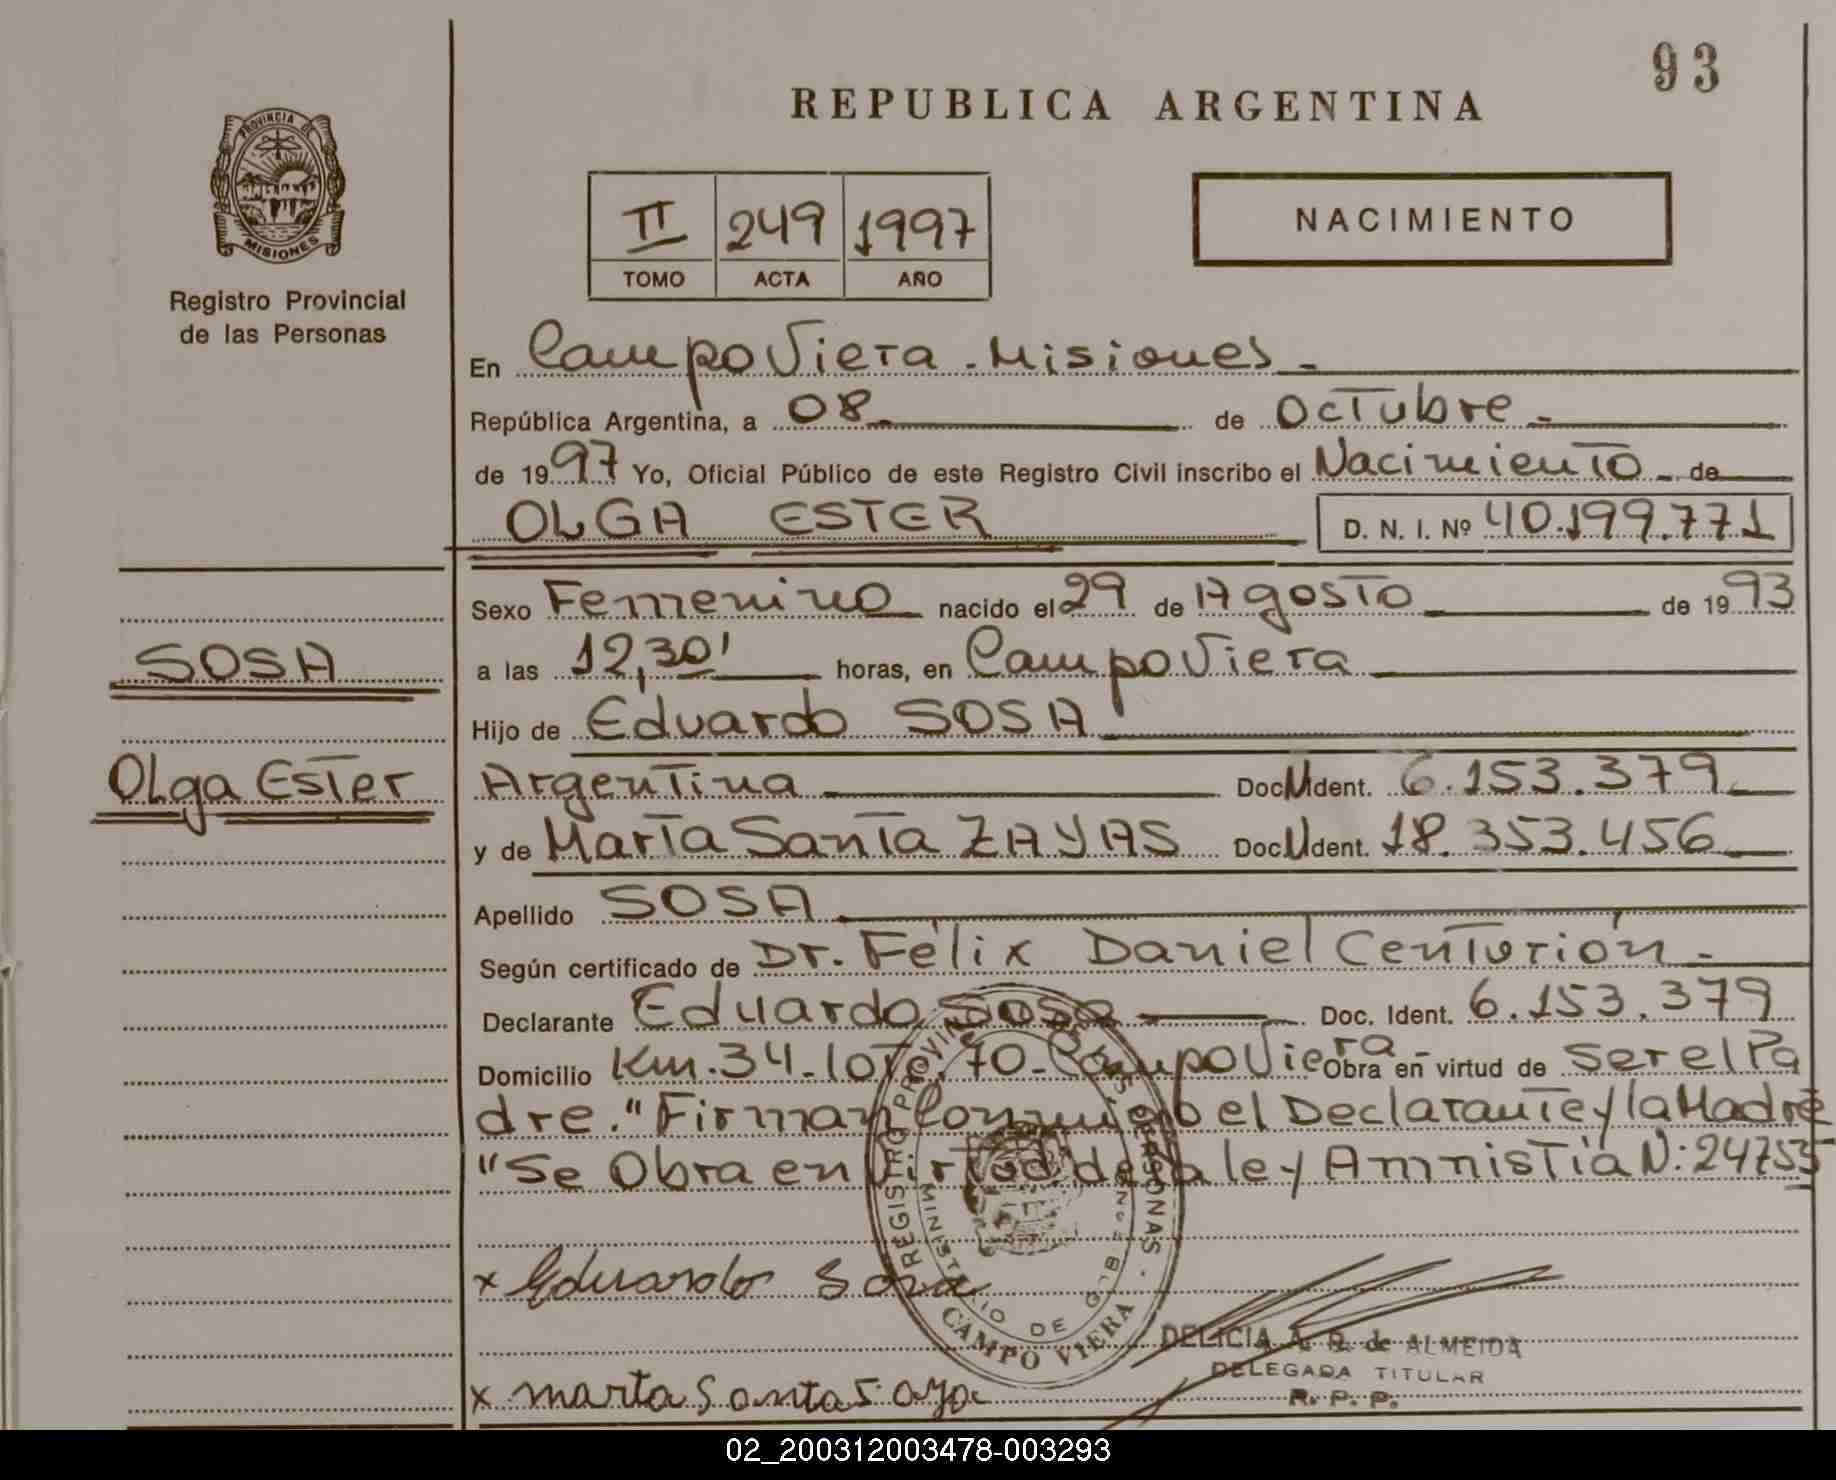 93
REPUBLICA ARGENTINA
PROVINCIA DE
MISIONES
Registro Provincial
de las Personas
II 249 1997
TOMO ACTA AÑO
NACIMIENTO
En Campo Viera - Misiones -
República Argentina, a 08 de Octubre -
de 1997 Yo, Oficial Público de este Registro Civil inscribo el Nacimiento de
OLGA ESTER D. N. I. Nº 40.199.771
Sexo Femenino nacido el 29 de Agosto de 1993
SOSA
a las 12,30' horas, en Campo Viera
Hijo de Eduardo SOSA
Olga Ester
Argentina Doc. Ident. 6.153.379
y de Marta Santa ZAYAS Doc. Ident. 18.353.456
Apellido SOSA
Según certificado de Dr. Félix Daniel Centurión -
Declarante Eduardo Sosa Doc. Ident. 6.153.379
Domicilio Km. 34 - lote 70 - Campo Viera - Obra en virtud de ser el Pa
dre. "Firman Conmigo el Declarante y la Madre
"Se Obra en Virtud de la ley Amnistía N: 24755
x Eduardo Sosa
REGISTRO PROVINCIAL DE LAS PERSONAS
MINISTERIO DE GOB
CAMPO VIERA
DELICIA A. R. de ALMEIDA
DELEGADA TITULAR
R. P. P.
x marta Santa
02_200312003478-003293